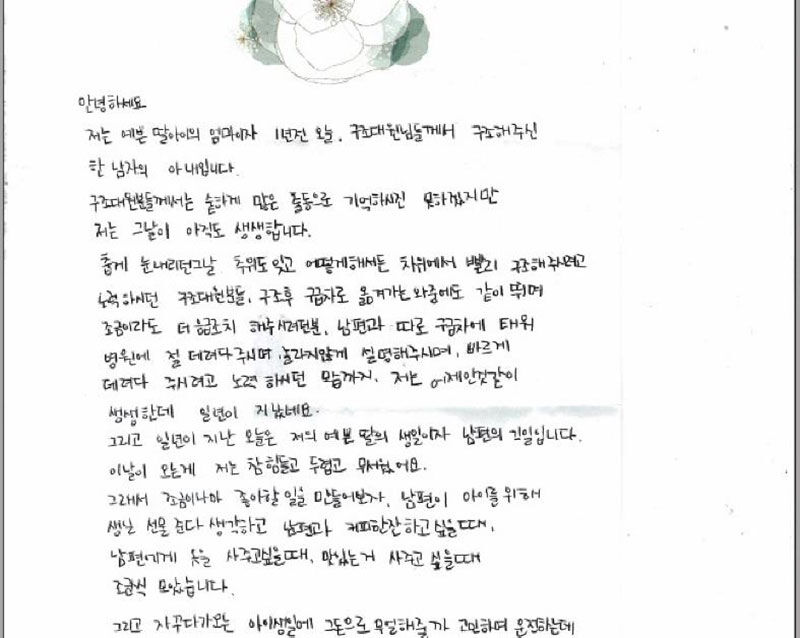 안녕하세요
저는 예쁜 딸아이의 엄마이자 1년전 오늘, 구조대원님들께서 구조해주신
한 남자의 아내입니다.
구조대원분들께서는 숱하게 많은 출동으로 기억하시진 못하겠지만
저는 그날이 아직도 생생합니다.
춥게 눈내리던그날 추위도 잊고 어떻게해서든 차위에서 빨리 구조해주시려고
노력하시던 구조대원분들, 구조후 구급차로 옮겨가는 와중에도 같이 뛰며
조금이라도 더 응급조치 해주시려던분, 남편과 따로 구급차에 태워
병원에 절 데려다주시며 놀라지않게 설명해주시며, 빠르게
데려다 주시려고 노력하시던 모습까지. 저는 어제인것같이
생생한데 일년이 지났네요.
그리고 일년이 지난 오늘은 저의 예쁜 딸의 생일이자 남편의 기일입니다.
이날이 오는게 저는 참 힘들고 두렵고 무서웠어요.
그래서 조금이나마 좋아할 일을 만들어보자, 남편이 아이를위해
생일 선물 준다 생각하고 남편과 커피한잔하고 싶을때,
남편에게 옷을 사주고싶을때, 맛있는거 사주고 싶을때
조금씩 모았습니다.
그리고 자꾸다가오는 아이생일에 그돈으로 무얼해줄까 고민하며 운전하는데